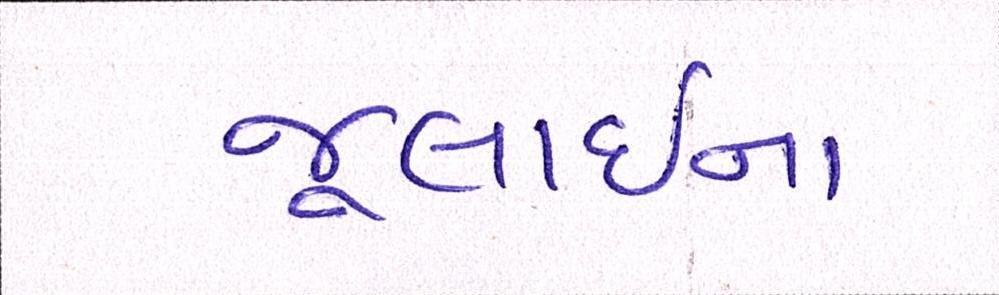 જૂલાઈના